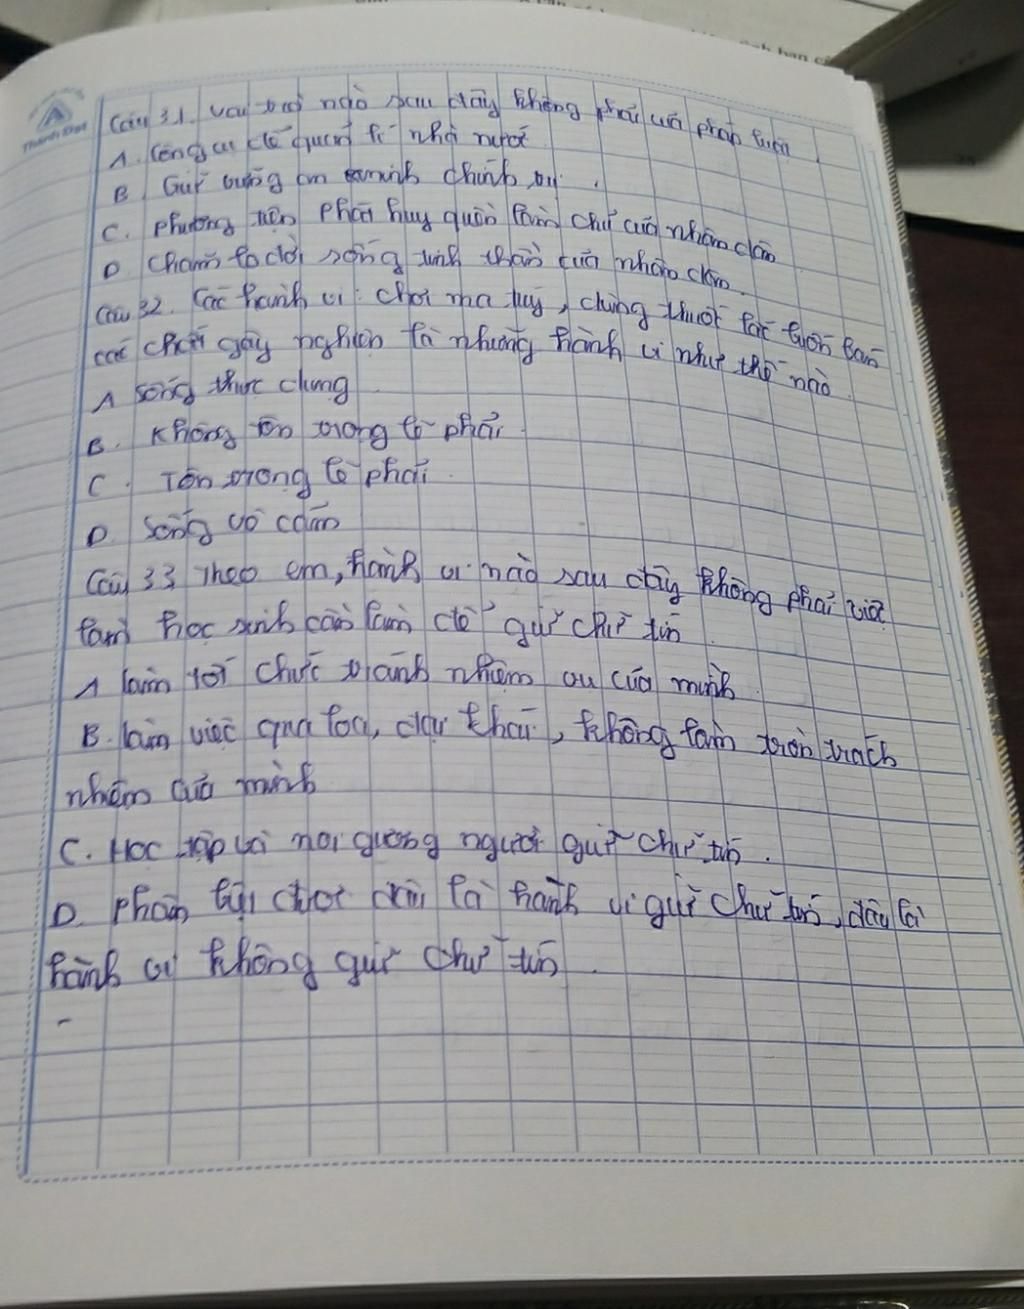 Thành Đạt
Câu 31. vai trò nào sau đây không phải của pháp luật
A. Công cụ để quản lí nhà nước
B. Giữ vững an ninh chính trị.
C. phương tiện phát huy quền làm chủ của nhân dân
D Chăm lo đời sống tinh thần của nhân dân.
Câu 32. Các hành vi: chơi ma túy, dùng thuốc lắc buôn bán
các chất gây nghiện là những hành vi như thế nào
A sống thực dụng
B. Không tôn trong lẽ phải
C. Tôn trong lẽ phải.
D sống vô cảm
Câu 33 Theo em, hành vi nào sau đây không phải việc
làm học sinh cần làm để giữ chữ tín
A làm tốt chức trách nhiệm vụ của mình
B. làm việc qua loa, đại khái, không làm tròn trách
nhiệm của mình
C. Học tập và noi gương người giữ chữ tín.
D. phân biệt được đâu là hành vi giữ chữ tín, đâu là
hành vi không giữ chữ tín.
-